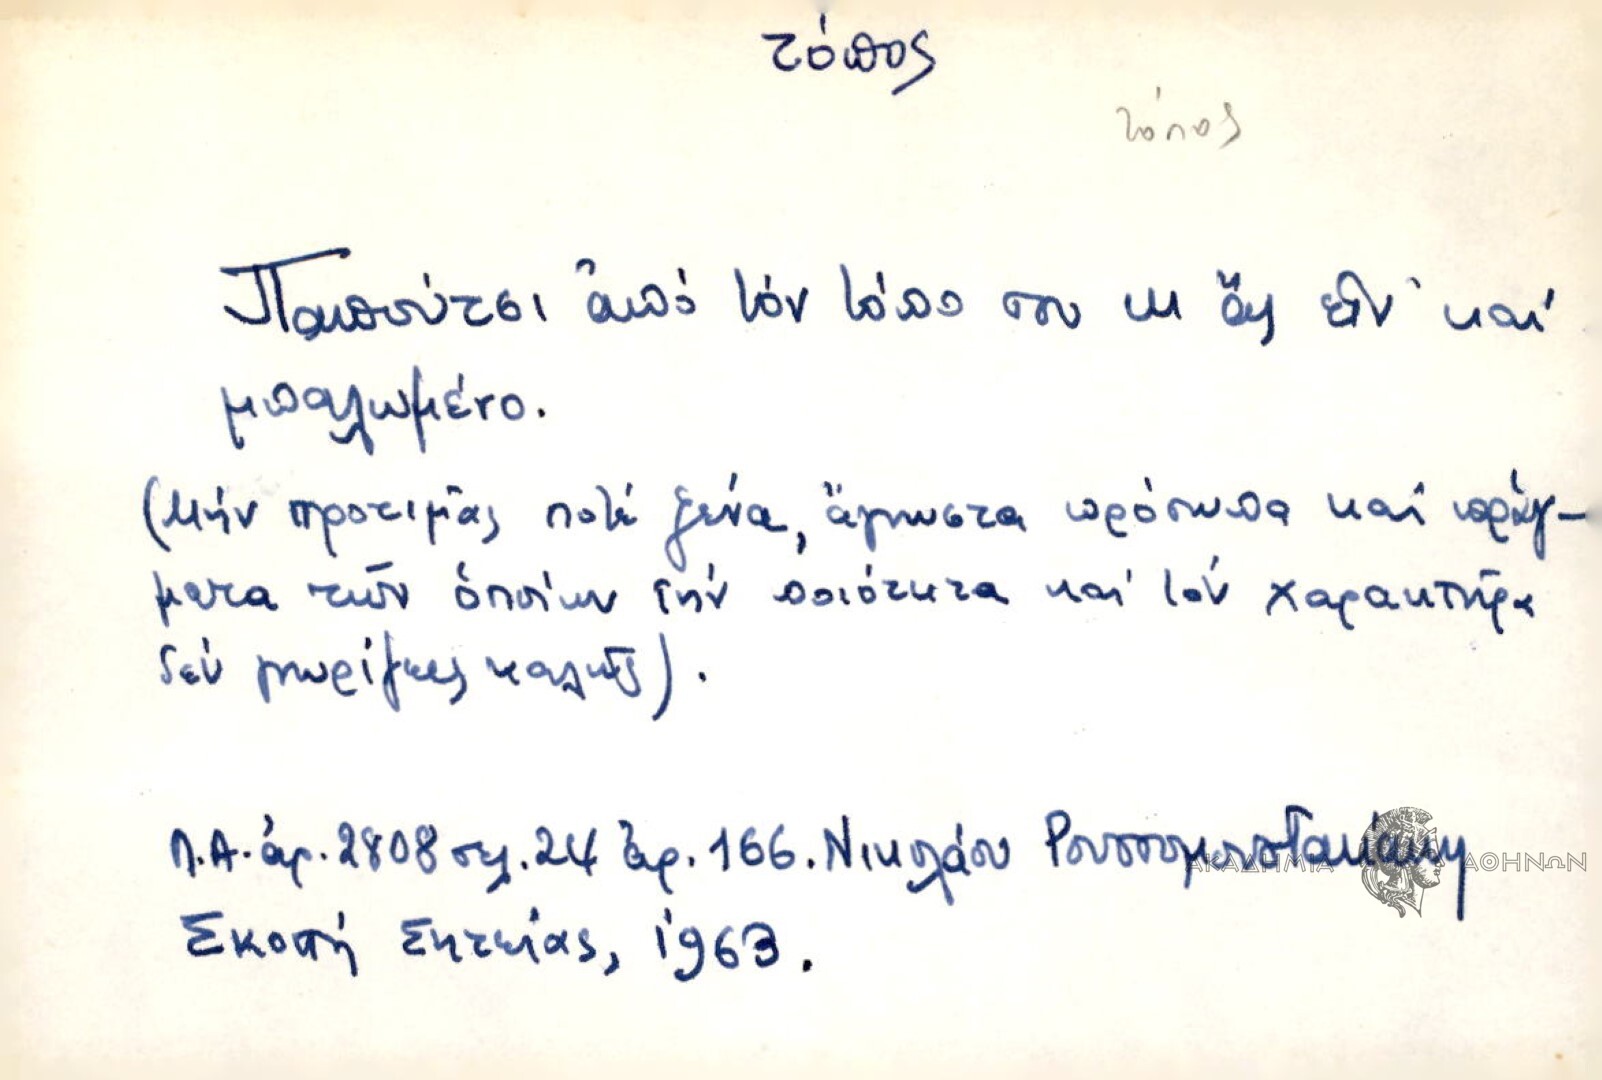 τόπος
τόπος
Παπούτσι ἀπό τόν τόπο σου κι ἄς εἶν' καί
μπαλωμένο.
(Μήν προτιμᾶς ποτέ ξένα, ἄγνωστα πρόσωπα καί πράγ-
ματα τῶν ὁποίων τήν ποιότητα καί τόν χαρακτῆρα
δέν γνωρίζεις καλῶς).
Λ.Α. ἀρ. 2808 σελ. 24 ἀρ. 166. Νικολάου
ΑΚΑΔΗΜΙΑ ΑΘΗΝΩΝ
Σκοπή Σητείας, 1963.